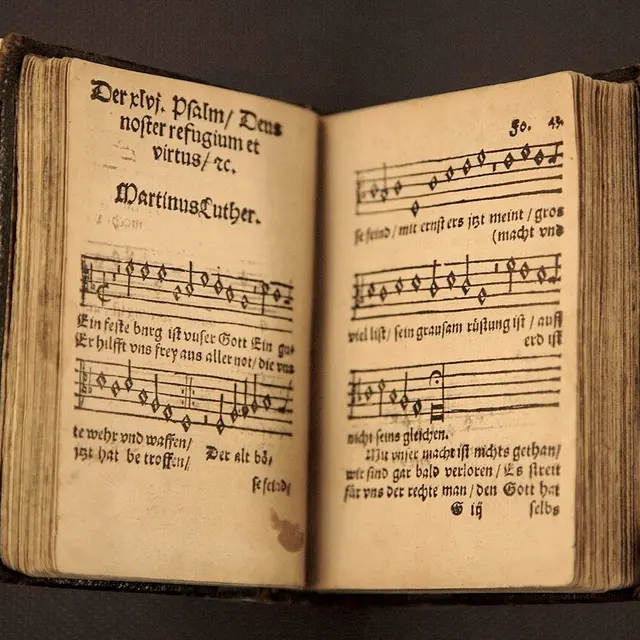 Der xlvj. Psalm/ Deus
noster refugium et
virtus/ ꝛc.
Martinus Luther.
Ein feste burg ist vnser Gott Ein gu⸗
Er hilfft vns frey aus aller not/ die vns
te wehr vnd waffen/
jtzt hat be troffen/ Der alt bö⸗
se feind/
Fo. 43.
se feind/ mit ernst ers jtzt meint/ gros
(macht vnd
viel list/ sein grausam rüstung ist/ auff
erd ist
nicht seins gleichen.
Mit vnser macht ist nichts gethan/
wir sind gar bald verloren/ Es streit
für vns der rechte man/ den Gott hat
G iij selbs